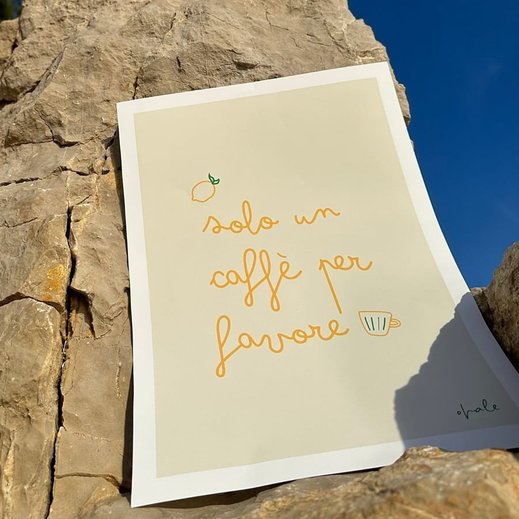 solo un
caffè per
favore